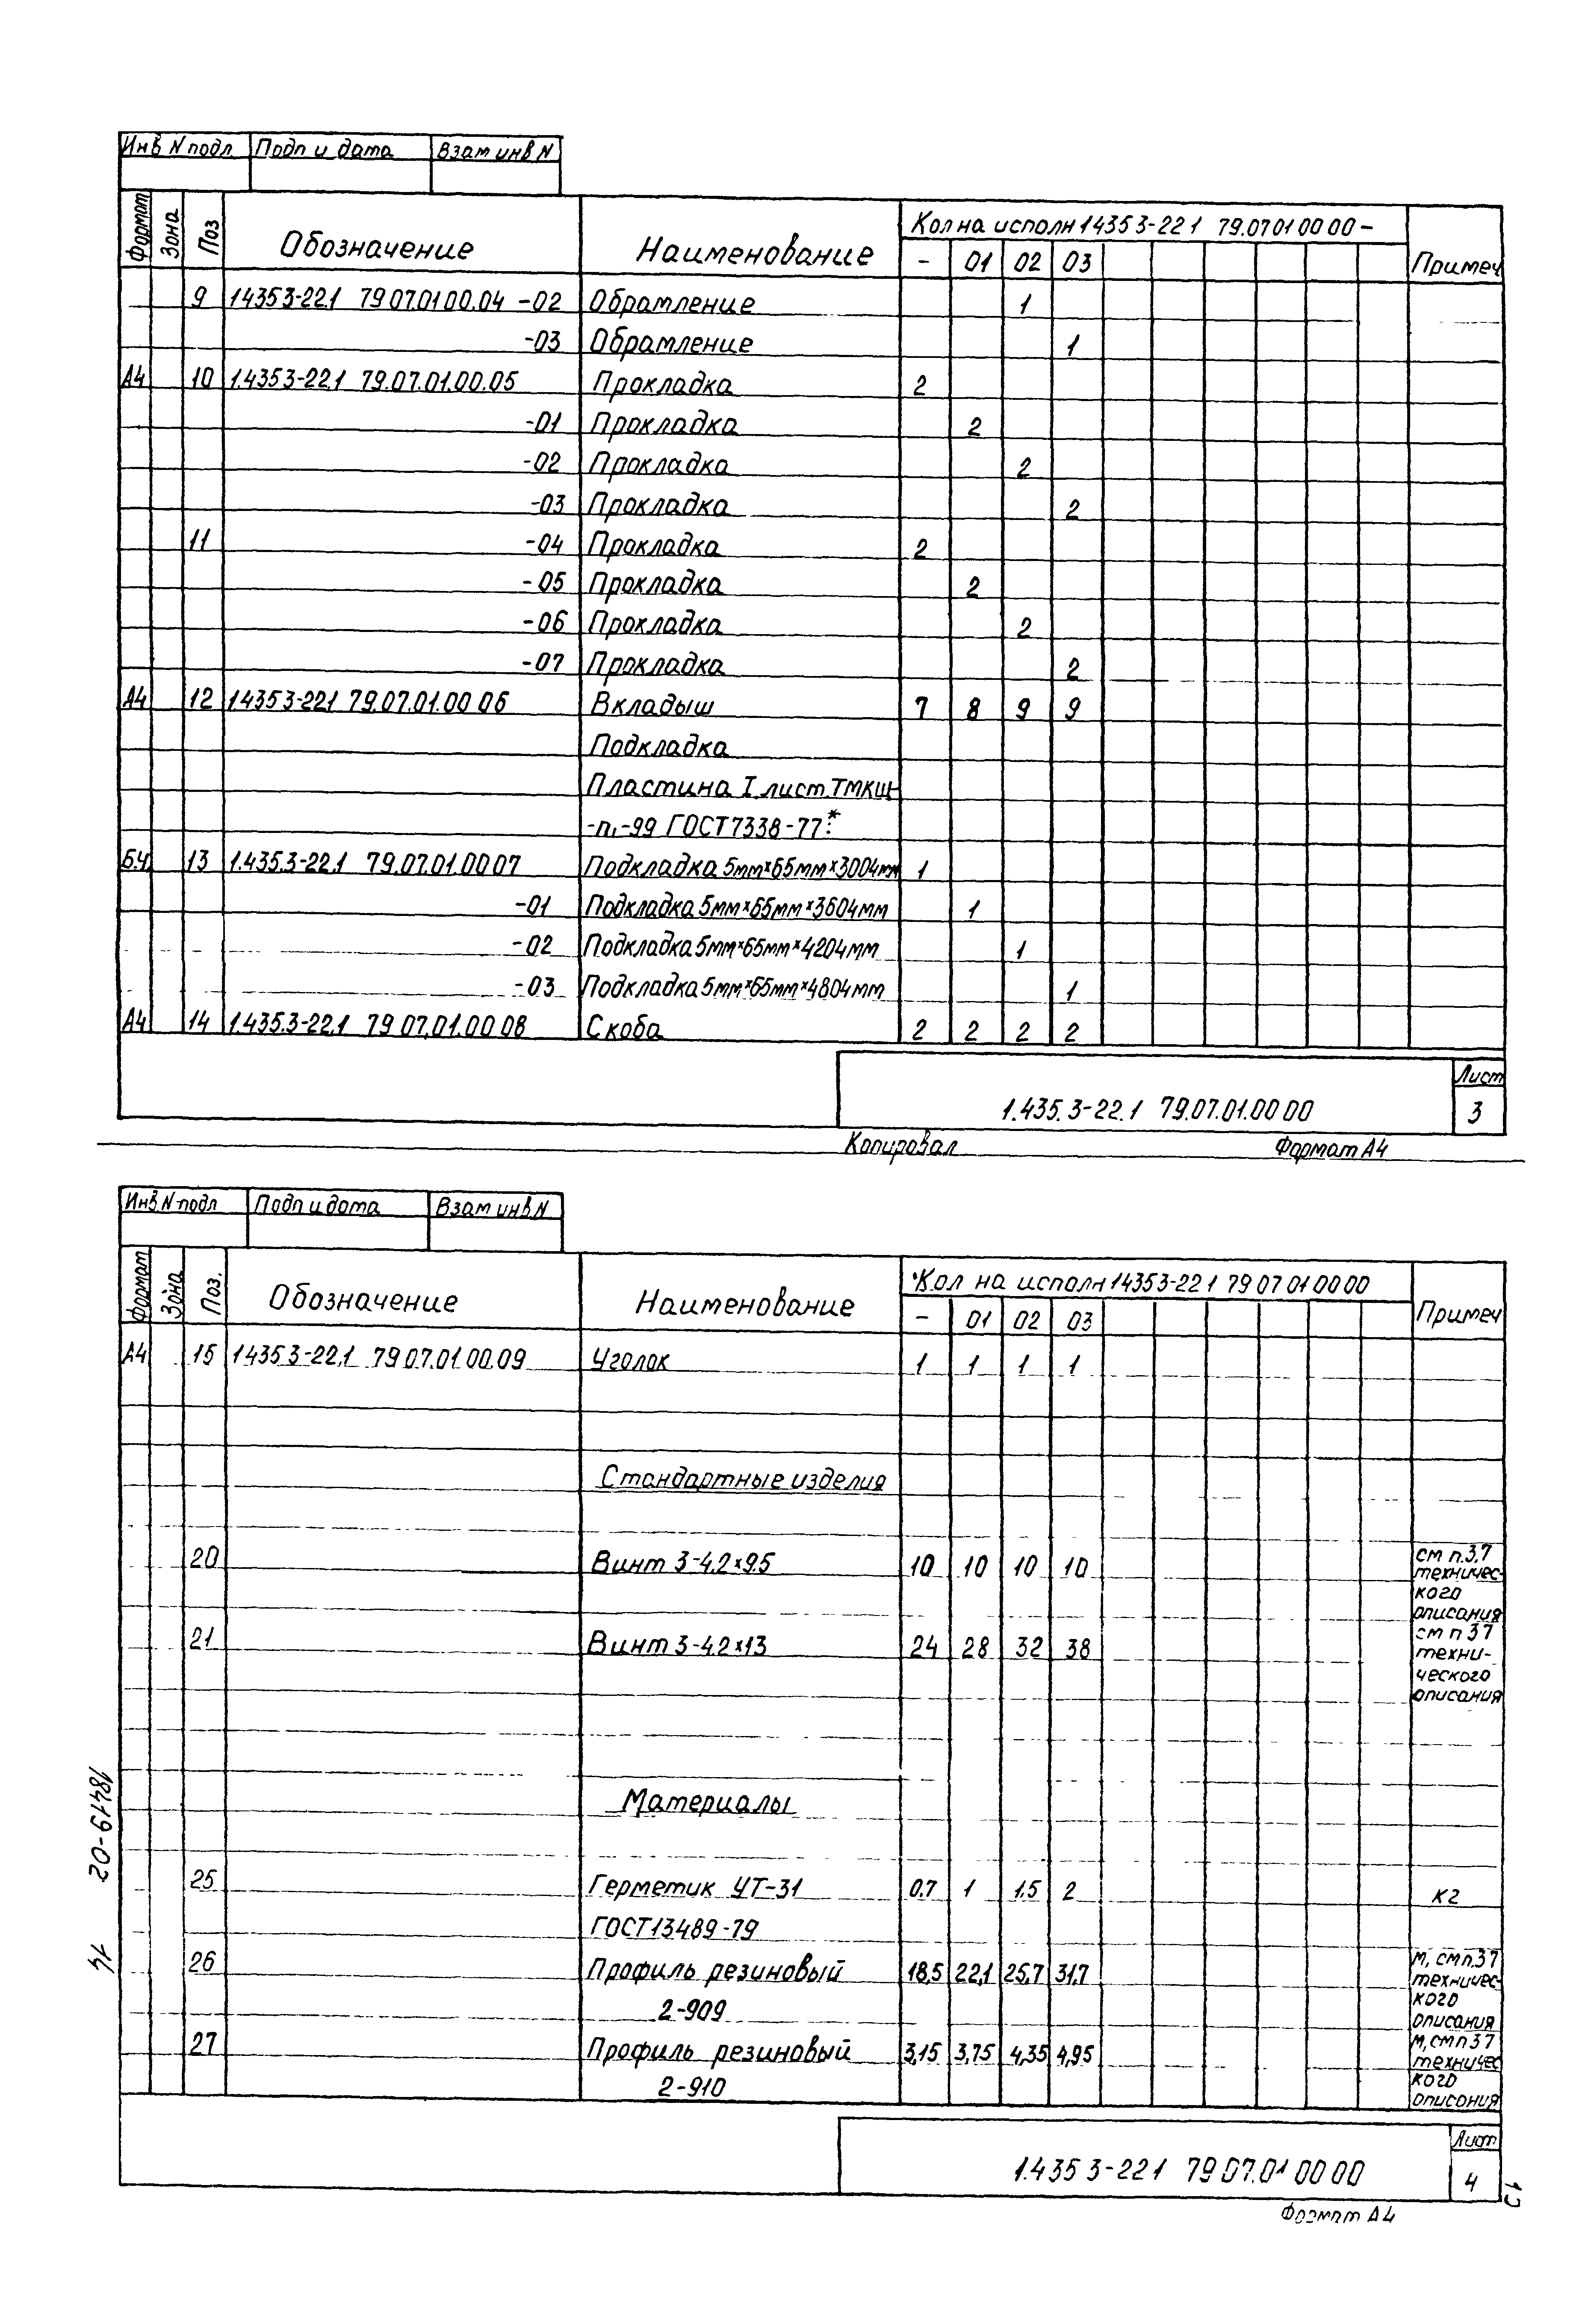 Инв N подл Подп и дата Взам инв N
Формат Зона Поз Обозначение Наименование Кол на исполн 14353-22 1 79.07 01 00 00 - Примеч
- 01 02 03
9 14353-22.1 79 07.01 00.04 -02 Обрамление 1
-03 Обрамление 1
А4 10 1.435 3-22.1 79.07.01.00.05 Прокладка 2
-01 Прокладка 2
-02 Прокладка 2
-03 Прокладка 2
11 -04 Прокладка 2
-05 Прокладка 2
-06 Прокладка 2
-07 Прокладка 2
А4 12 1435 3-221 79.07.01.00 06 Вкладыш 7 8 9 9
Подкладка
Пластина I лист ТМКЩ-
-п1-99 ГОСТ 7338-77*
БЧ 13 1.435.3-22.1 79.07.01.00 07 Подкладка 5мм×65мм×3004мм 1
-01 Подкладка 5мм×65мм×3604мм 1
-02 Подкладка 5мм×65мм×4204мм 1
-03 Подкладка 5мм×65мм×4804мм 1
А4 14 1.435.3-22.1 79 07.01.00 08 Скоба 2 2 2 2
1.435.3-22.1 79.07.01.00 00
Лист
3
Копировал Формат А4
Инв N подл Подп и дата Взам инв N
Формат Зона Поз. Обозначение Наименование Кол на исполн 14353-22 1 79 07 01 00 00 Примеч
- 01 02 03
А4 15 1435 3-22.1 79 07.01 00.09 Уголок 1 1 1 1
Стандартные изделия
20 Винт 3-4.2×9.5 10 10 10 10 см п.3.7
техничес-
кого
описания
21 Винт 3-4.2×13 24 28 32 38 см п 3 7
техни-
ческого
описания
Материалы
25 Герметик УТ-31 0.7 1 1.5 2 кг
ГОСТ 13489-79
26 Профиль резиновый 18,5 22,1 25,7 31,7 м, см п.3 7
2-909 техничес-
кого
описания
27 Профиль резиновый 3,15 3,75 4,35 4,95 м, см п 3 7
2-910 техничес
кого
описания
1.435 3-22 1 79 07.01 00 00
Лист
4
Формат А4
18419-02
14